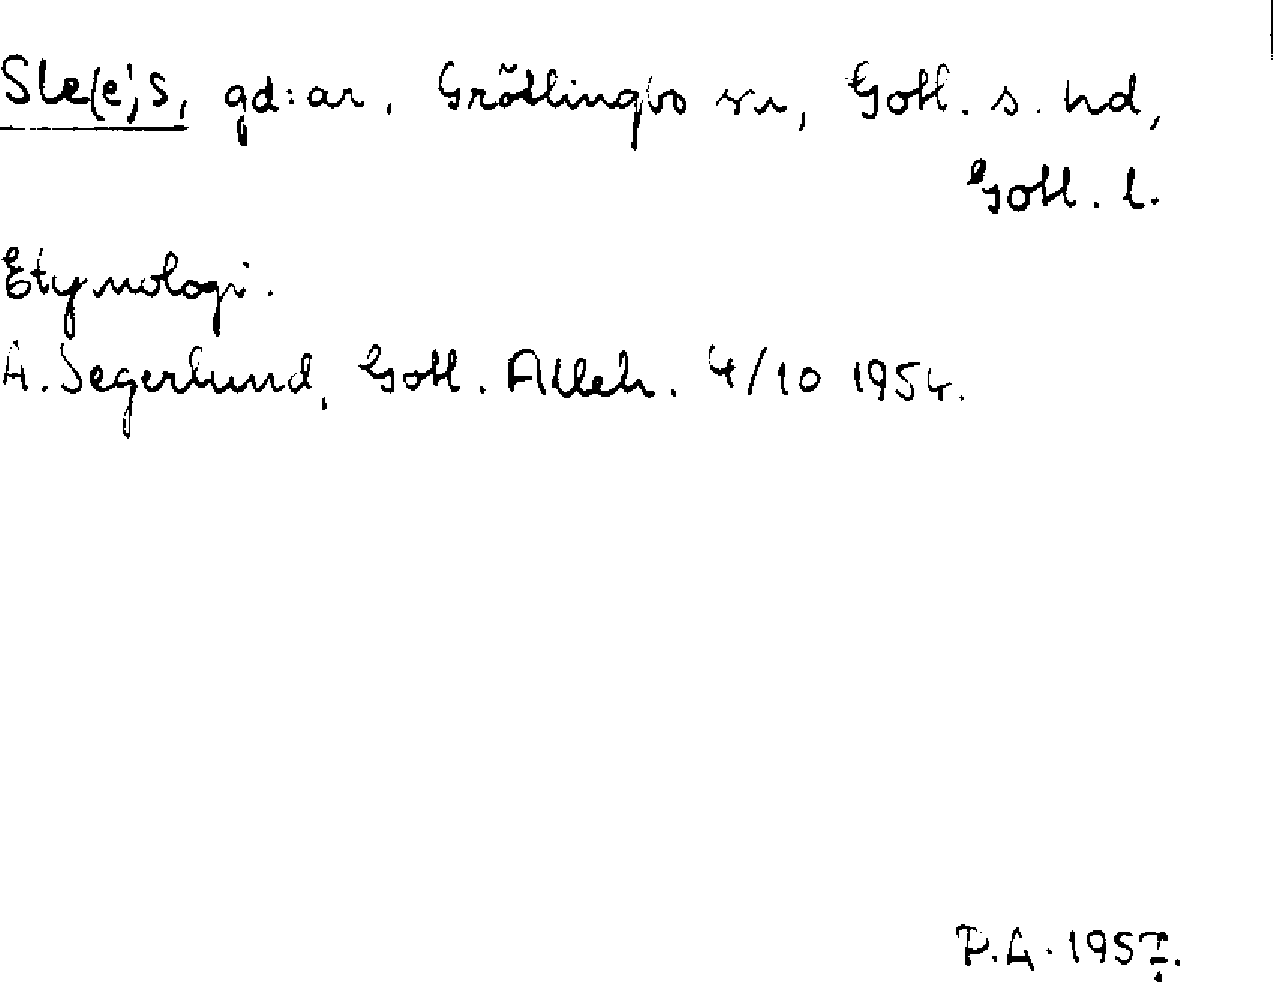 Sle(e)s, gd:ar, Grötlingbo sn, Gotl. s. hd,
Gotl. l.
Etymologi.
A. Segerlund, Gotl. Alleh. 4/10 1954.
P.A. 1957.